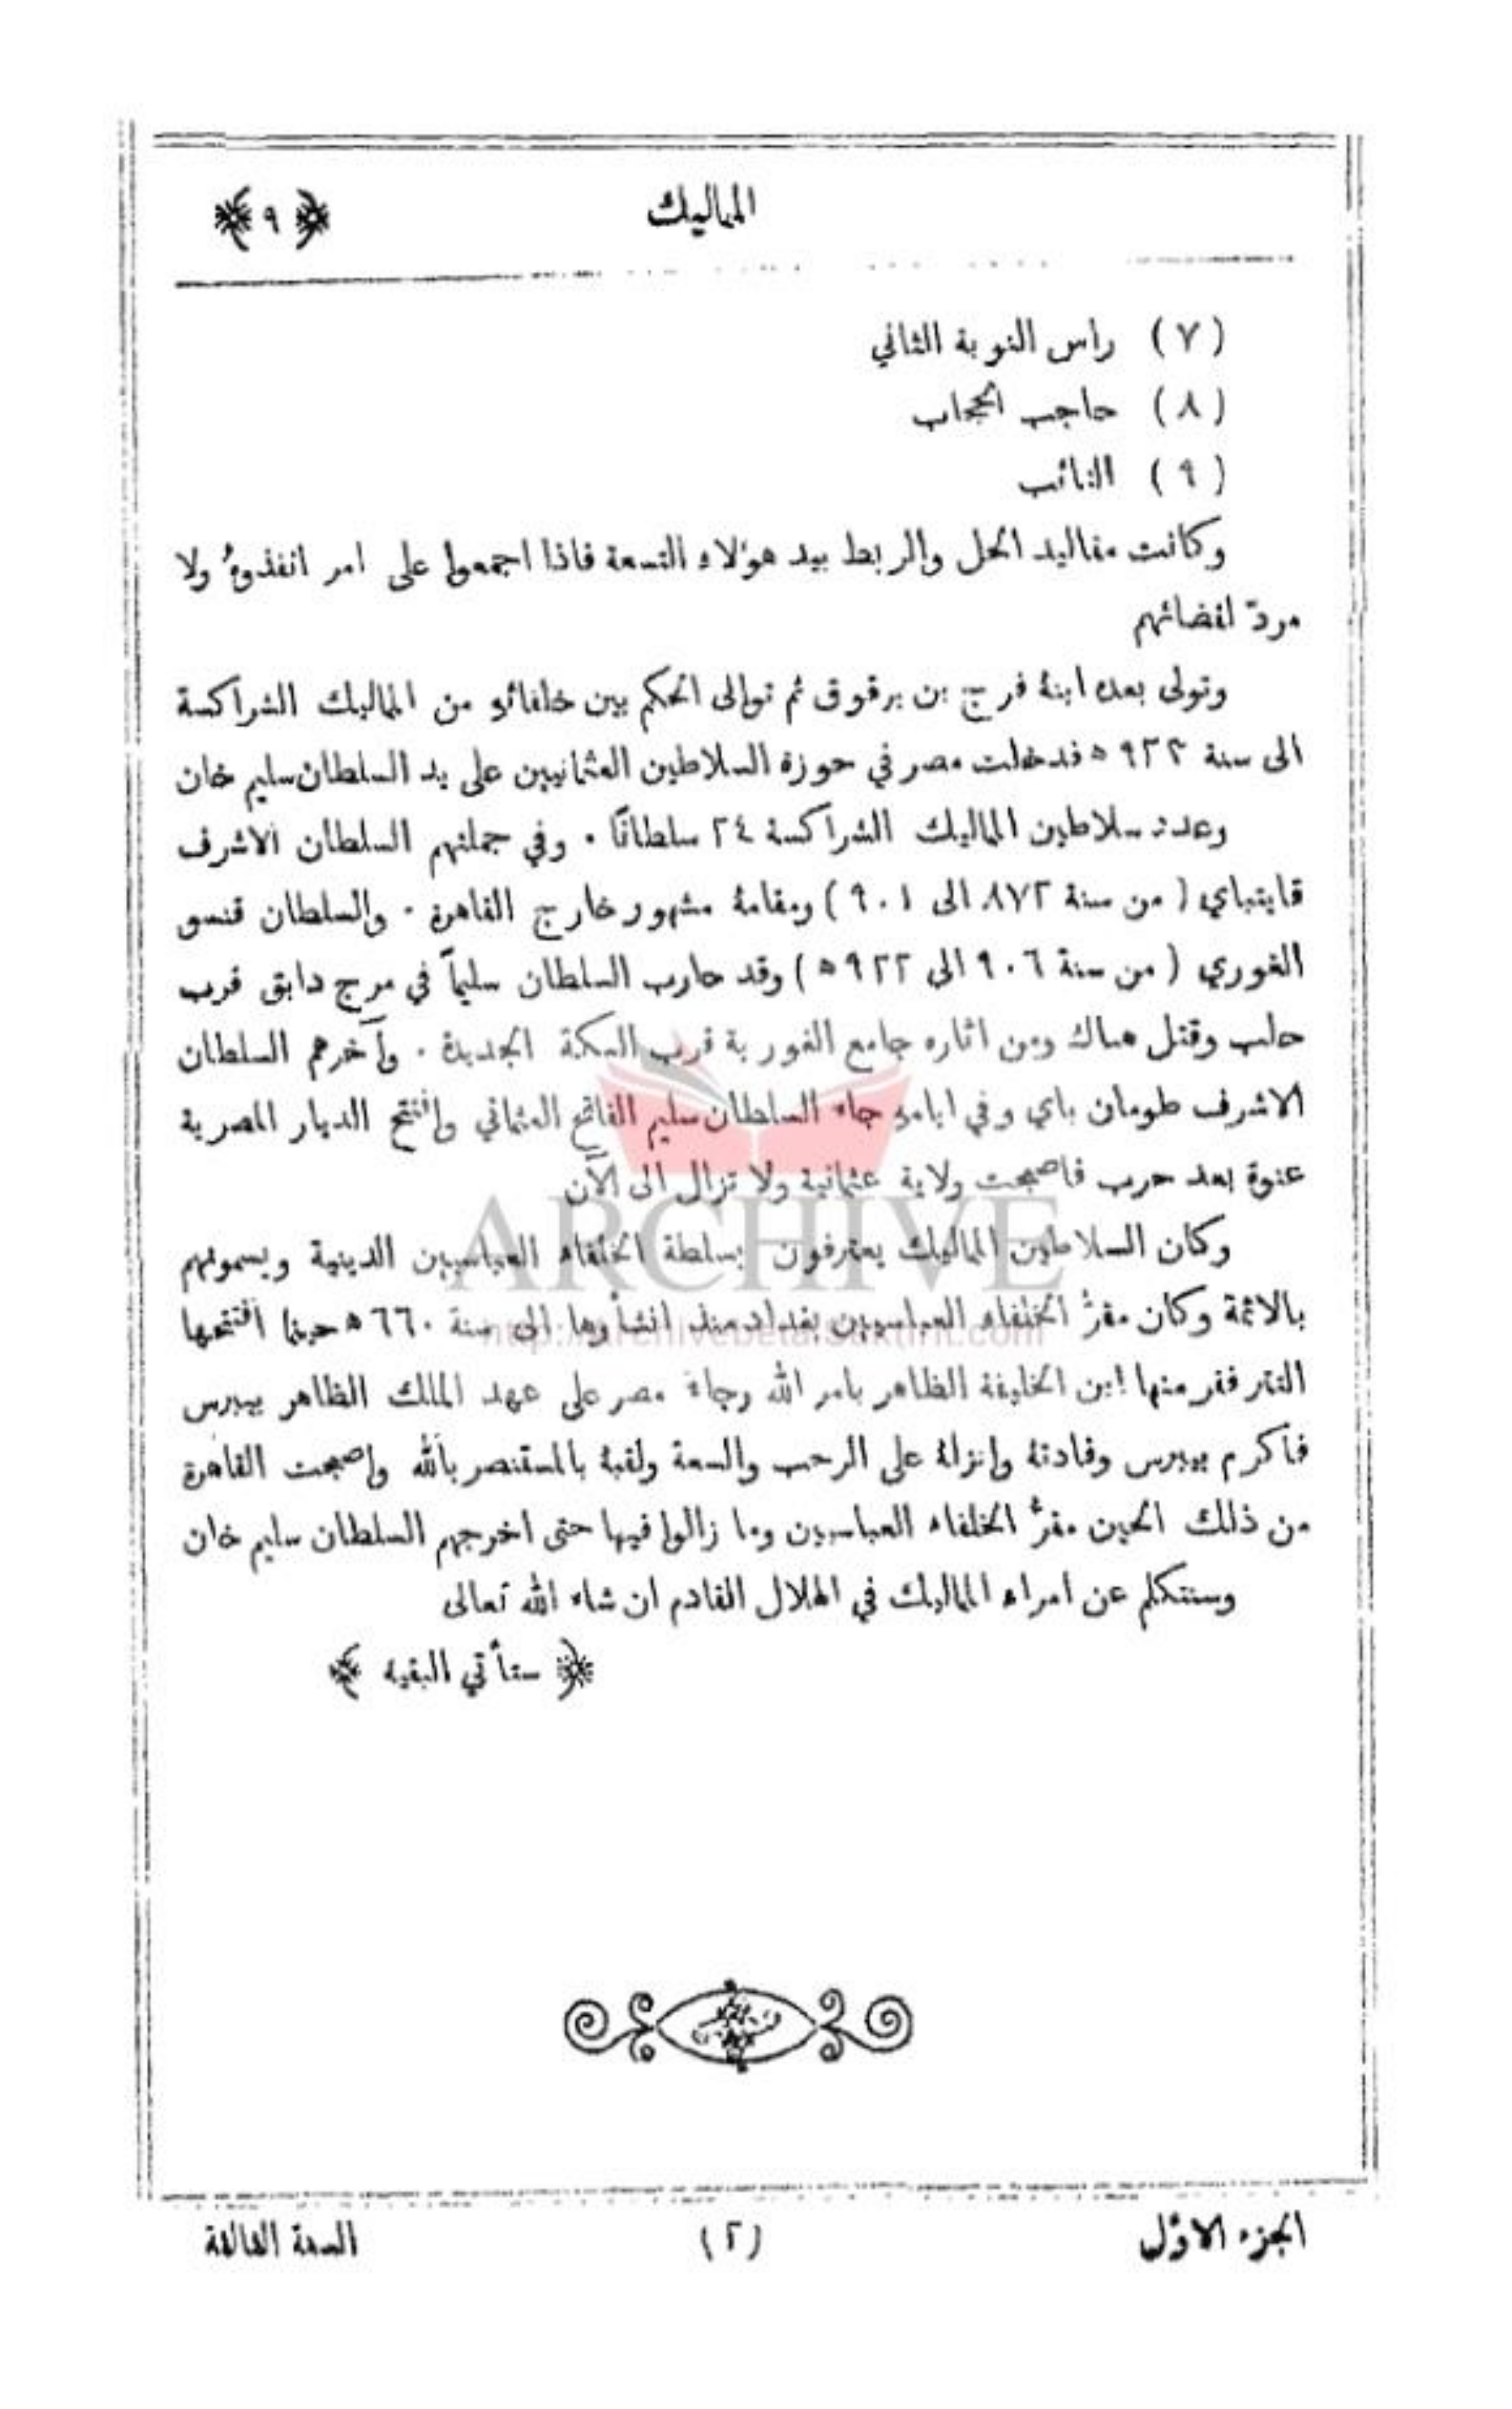 المماليك
﴿ ٩ ﴾
( ٧ ) راس النوبة الثاني
( ٨ ) حاجب الحجاب
( ٩ ) النائب
وكانت مقاليد الحل والربط بيد هؤلاء التسعة فاذا اجمعوا على امر انفذوهُ ولا
مردّ لقضائهم
وتولى بعده ابنهُ فرج بن برقوق ثم توالى الحكم بين خلفائهِ من المماليك الشراكسة
الى سنة ٩٢٢ ه فدخلت مصر في حوزة السلاطين العثمانيين على يد السلطان سليم خان
وعدد سلاطين المماليك الشراكسة ٢٤ سلطانًا . وفي جملتهم السلطان الاشرف
قايتباي ( من سنة ٨٧٢ الى ٩٠١ ) ومقامهُ مشهور خارج القاهرة . والسلطان قنسو
الغوري ( من سنة ٩٠٦ الى ٩٢٢ ه ) وقد حارب السلطان سليماً في مرج دابق قرب
حلب وقتل هناك ومن اثاره جامع الغورية قرب السكة الجديدة . وآخرهم السلطان
الاشرف طومان باي وفي ايامهِ جاء السلطان سليم الفاتح العثماني وافتتح الديار المصرية
عنوة بعد حرب فاصبحت ولاية عثمانية ولا تزال الى الآن
وكان السلاطين المماليك يعترفون بسلطة الخلفاء العباسيين الدينية ويسمونهم
بالائمة وكان مقرُّ الخلفاء العباسيين بغداد منذ انشأوها الى سنة ٦٦٠ ه حينما افتتحها
التتر ففر منها ابن الخليفة الظاهر بامر الله وجاءَ مصر على عهد الملك الظاهر بيبرس
فأكرم بيبرس وفادتهُ وانزلهُ على الرحب والسعة ولقبهُ بالمستنصر بالله واصبحت القاهرة
من ذلك الحين مقرُّ الخلفاء العباسيين وما زالوا فيها حتى اخرجهم السلطان سليم خان
وسنتكلم عن امراء المماليك في الهلال القادم ان شاء الله تعالى
﴿ ستأتي البقيه ﴾
ARCHIVE
الجزء الاوَّل
(٢)
السنة الثالثة